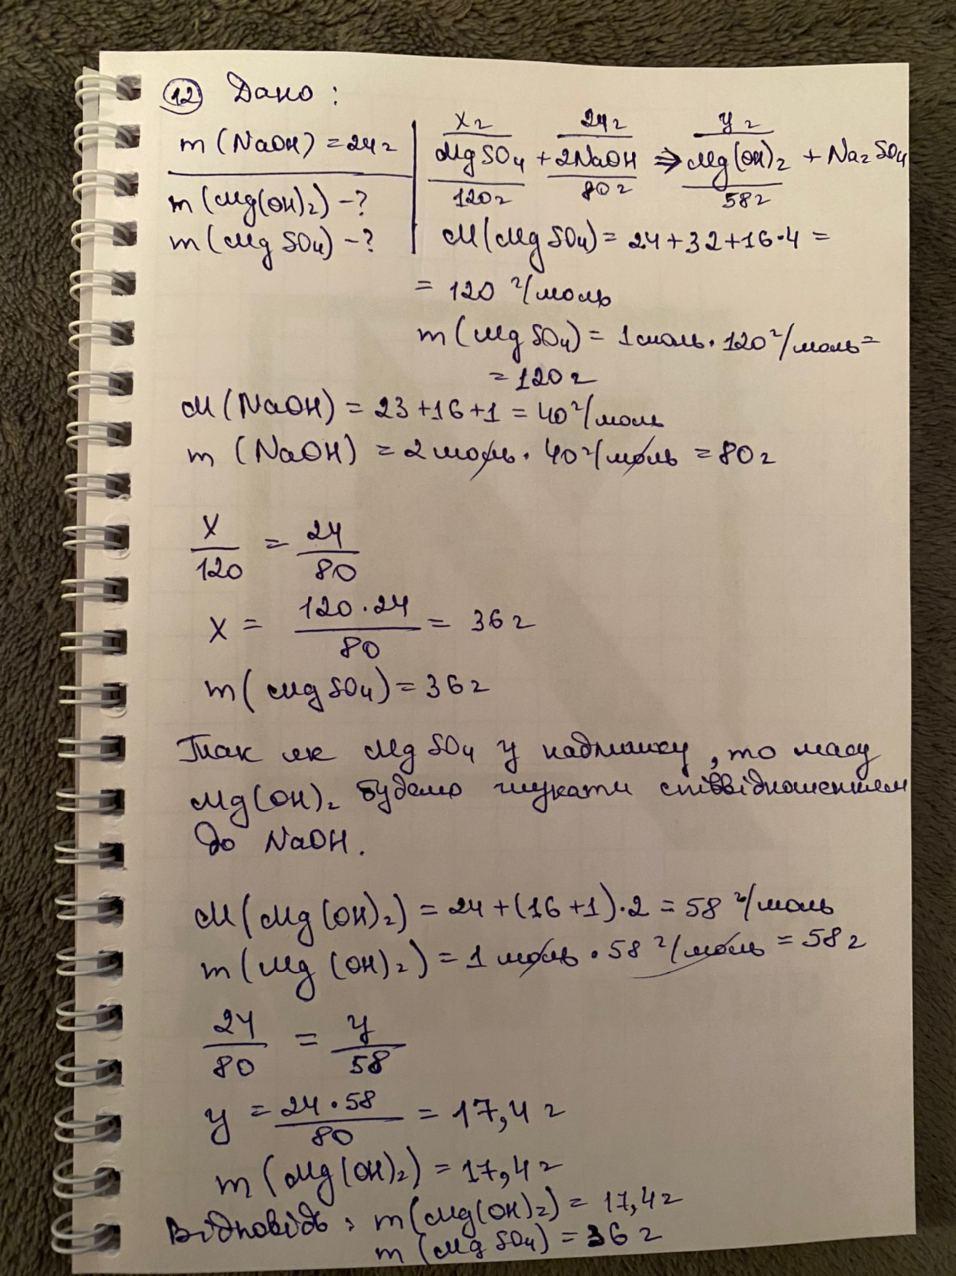 12 Дано:
m(NaOH) = 24г
m(Mg(OH)₂) - ?
m(MgSO₄) - ?
xг 24г yг
MgSO₄ + 2NaOH ⇒ Mg(OH)₂ + Na₂SO₄
120г 80г 58г
M(MgSO₄) = 24+32+16·4 =
= 120 г/моль
m(MgSO₄) = 1моль · 120г/моль =
= 120г
M(NaOH) = 23+16+1 = 40г/моль
m(NaOH) = 2моль · 40г/моль = 80г
x/120 = 24/80
x = 120·24/80 = 36г
m(MgSO₄) = 36г
Так як MgSO₄ у надлишку, то масу
Mg(OH)₂ будемо шукати співвідношенням
до NaOH.
M(Mg(OH)₂) = 24+(16+1)·2 = 58 г/моль
m(Mg(OH)₂) = 1 моль · 58 г/моль = 58г
24/80 = y/58
y = 24·58/80 = 17,4г
m(Mg(OH)₂) = 17,4г
Відповідь: m(Mg(OH)₂) = 17,4г
m(MgSO₄) = 36г